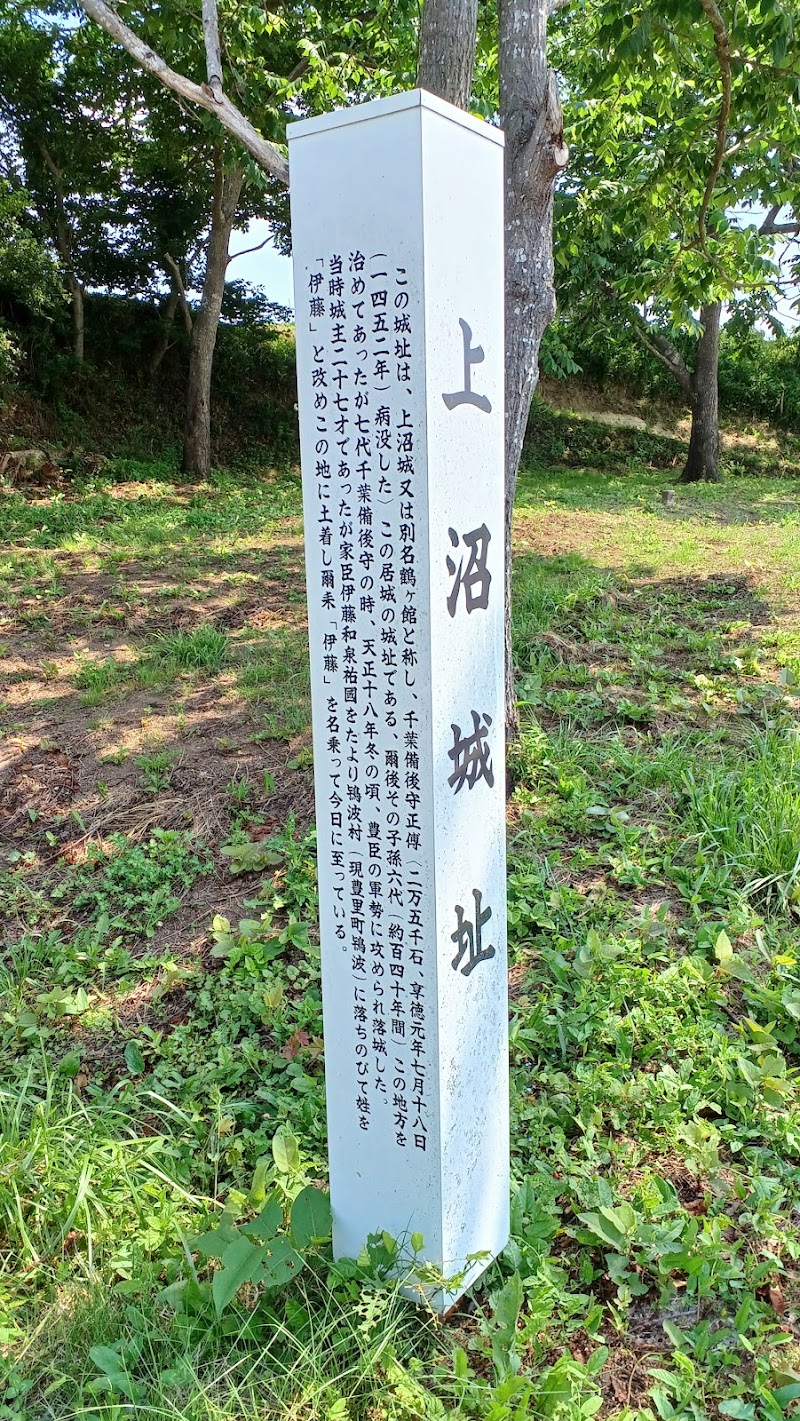 上沼城址
この城址は、上沼城又は別名鶴ヶ館と称し、千葉備後守正傳（二万五千石、享徳元年七月十八日
（一四五二年）病没した）この居城の城址である、爾後その子孫六代（約百四十年間）この地方を
治めてあったが七代千葉備後守の時、天正十八年冬の頃、豊臣の軍勢に攻められ落城した。
当時城主二十七才であったが家臣伊藤和泉祐國をたより鴇波村（現豊里町鴇波）に落ちのびて姓を
「伊藤」と改めこの地に土着し爾来「伊藤」を名乗って今日に至っている。